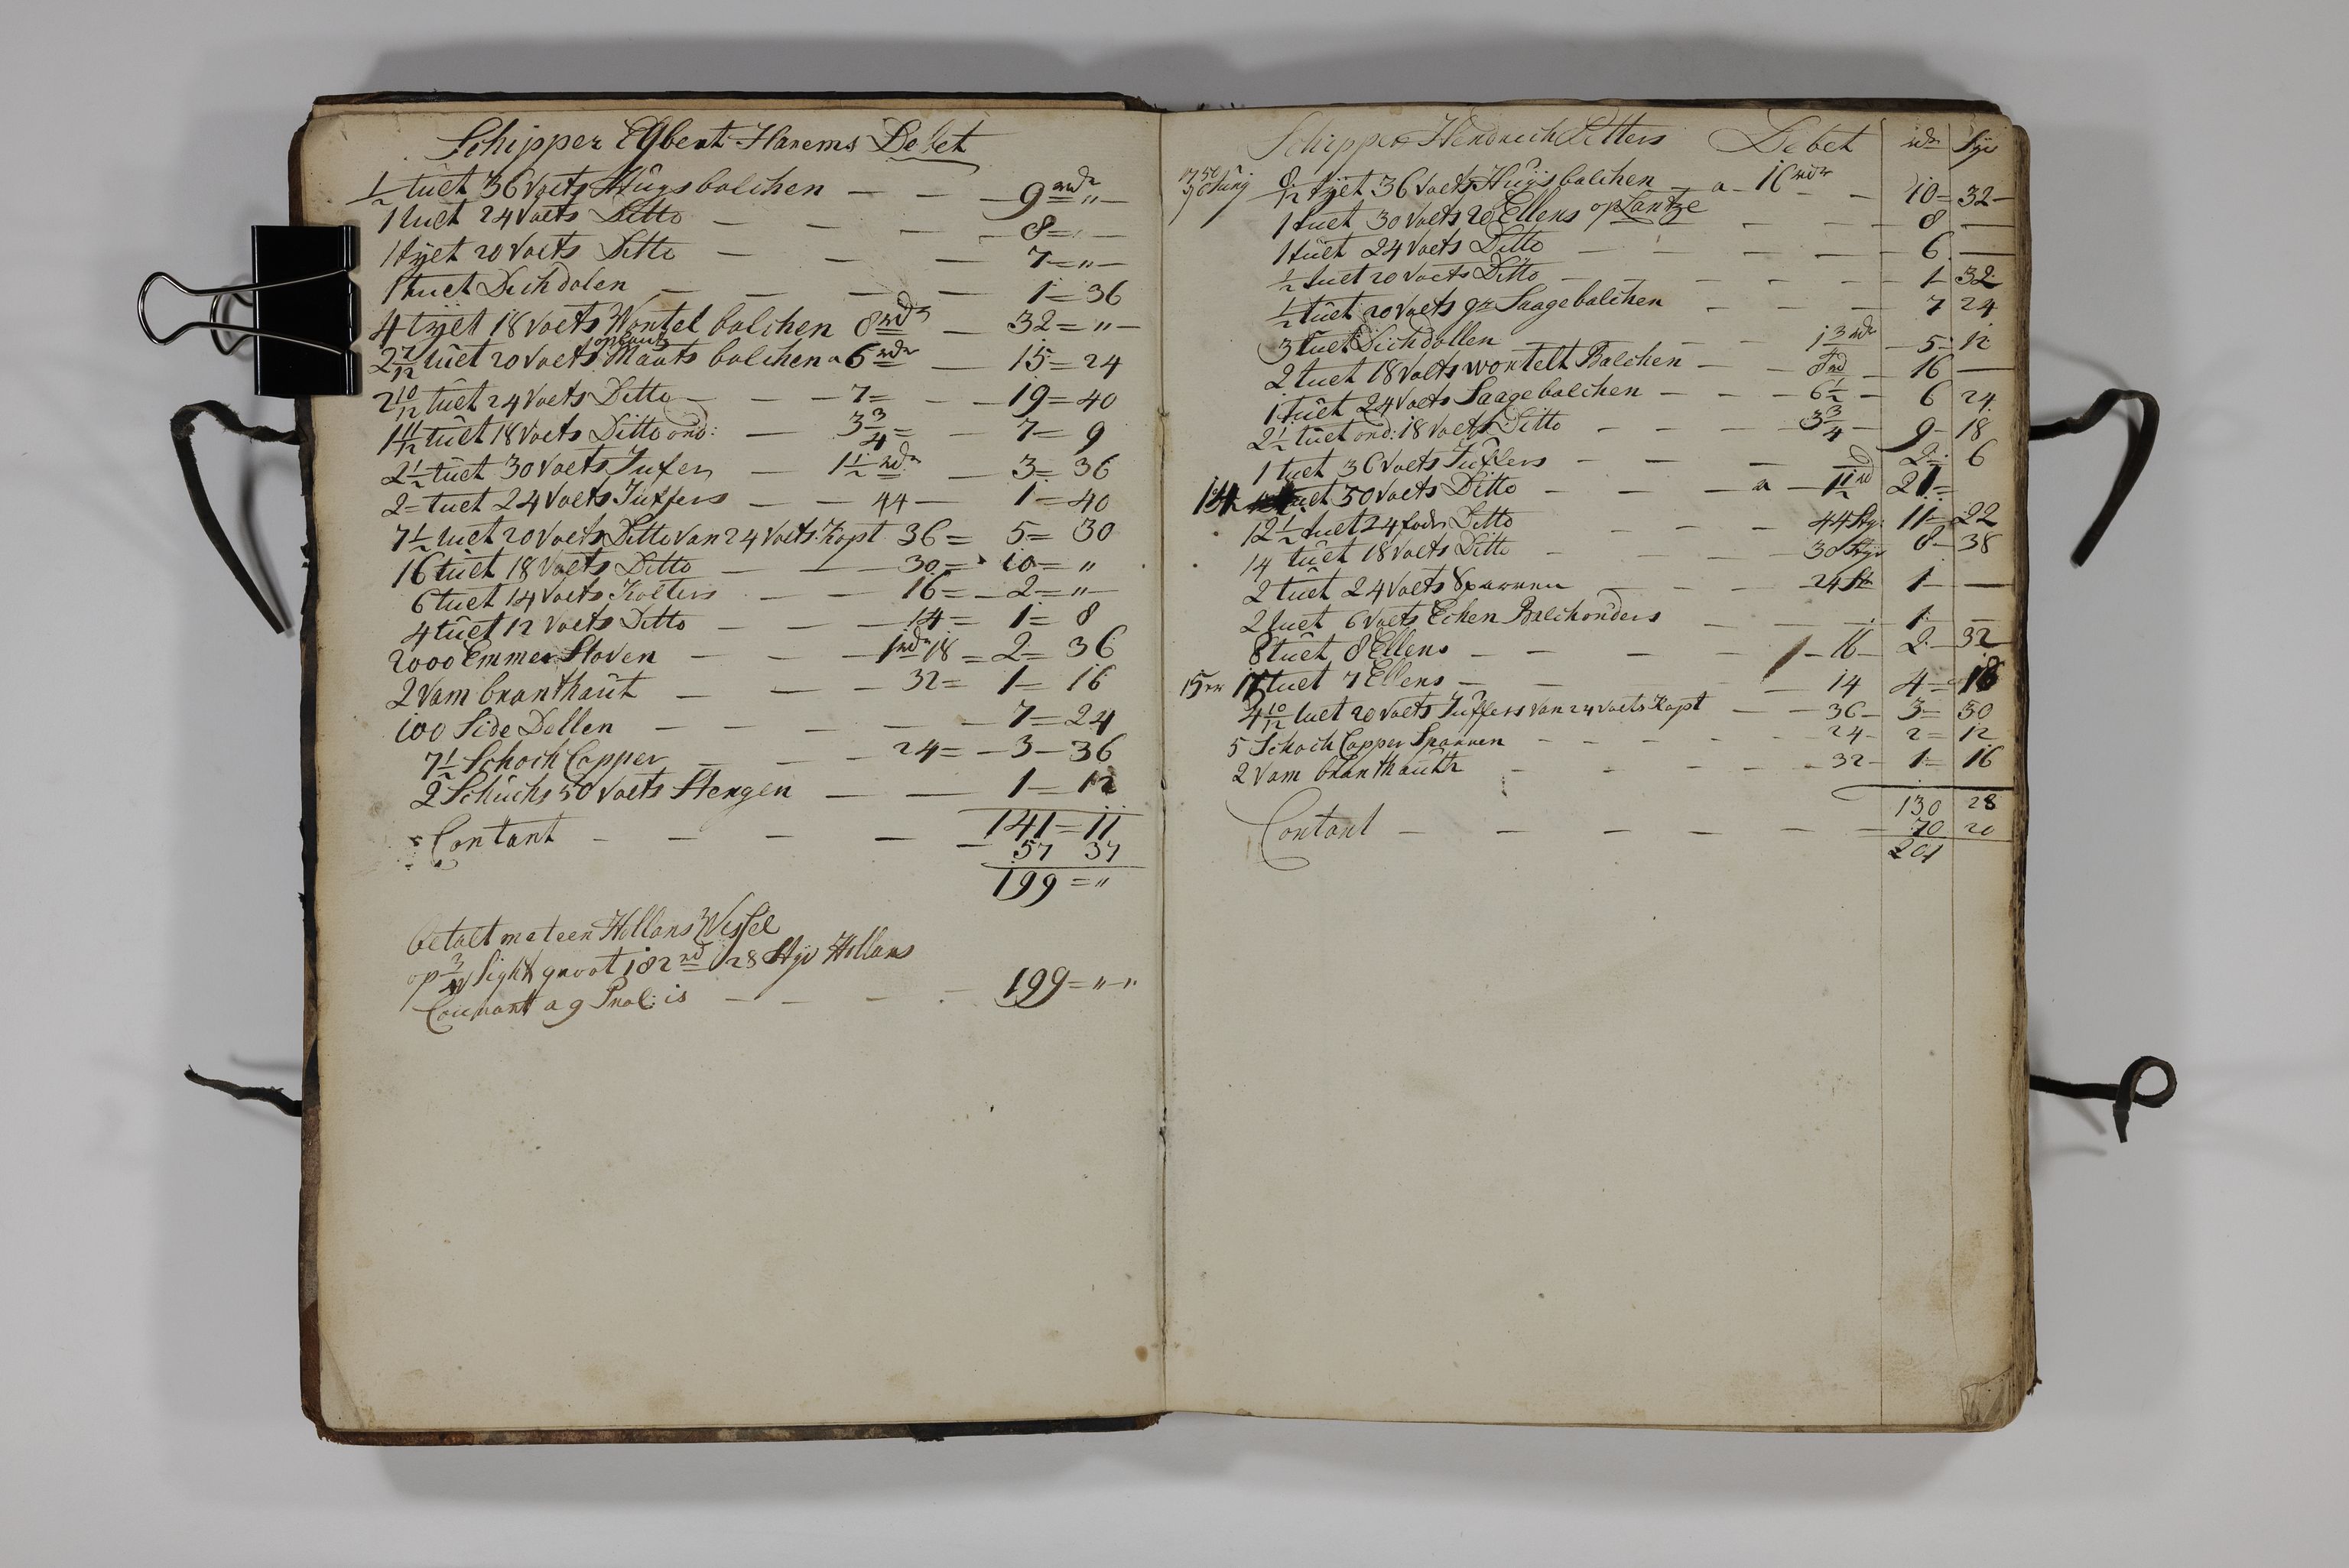 Schipper Egbert Harems Debet
1/2 tuet 36 Voets Hûÿs balchen — — 9 rdr " —
1 tuet 24 Voets Ditto — — — 8 = " —
1 tÿet 20 Voets Ditto — — — 7 = " —
1 tuet Dichdalen — — — — 1 = 36
4 tÿet 18 Voets Wortel balchen 8 rdr — 32 = " —
2 7/12 tuet 20 Voets Maats balchen a 6 rdr — 15 = 24
2 10/12 tuet 24 Voets Ditto — — — 7 = — 19 = 40
1 11/12 tuet 18 Voets Ditto ond: — 3 3/4 = — 7 = 9
2 1/2 tuet 30 Voets Jufers — 1 1/2 rdr — 3 = 36
2 = tuet 24 Voets Juffers — — 44 — 1 = 40
7 1/2 tuet 20 Voets Ditto van 24 Voets Kopt 36 = 5 = 30
16 tuet 18 Voets Ditto — — 30 = 10 = "
6 tuet 14 Voets Kolters — — 16 = — 2 = " —
4 tûet 12 Voets Ditto — — — 14 = 1 = 8
2000 Emmer Staven — — — 1 rdr 18 = 2 = 36
2 Vam branthaut — — — 32 = 1 — 16
100 Side Dellen — — — — 7 = 24
7 1/2 Schoch Capper — — 24 = — 3 — 36
2 Schuchs 50 Voets Stengen — — 1 — 12
141 = 11
Contant — — — — — 57 37
199 = "
betalt met een Hollans Wissel
op 3/m Sight groot 182 rd 28 Stÿv Hollans
Courant a 9 Proc: is — — — — 199 = " — "
Schipper Hendrich Detters Debet rdr Styv
1750
8/12 tÿet 36 Voets Hûÿs balchen — a — 16 rdr — 10 = 32 —
1 tuet 30 Voets 20 Ellens op Lantze — — — 8 —
1 tuet 24 Voets Ditto — — — — 6 —
1/2 tuet 20 Voets Ditto — — — — 1 — 32
1/2 tuet 20 Voets gr Saagebalchen — — — 7 24
3 tuet Dichdollen — — — 1 3/4 rdr — 5 = 12
2 tuet 18 Voets wortelt Balchen — — 8 rd — 16 —
1 tuet 24 Voets Saagebalchen — — — 6 1/2 — 6 24
2 1/2 tuet ond: 18 Voets Ditto — — — 3 3/4 9 — 18
1 tuet 36 Voets Jufflers — — — 2 = 6
14 tuet 30 Voets Ditto — — — a — 1 1/2 rd 21 =
12 1/2 tuet 24 Ditto — — — 44 Sty: 11 — 22
14 tuet 18 Voets Ditto — — — 30 Styv 8 — 38
2 tuet 24 Voets Sparren — — — 24 St 1 — —
2 tuet 6 Voets Echen Balchonders — — — 1 — —
8 tuet 8 Ellens — — — — 1 — 16 — 2 — 32
15 tuet 7 Ellens — — — — 14 4 = 18
4 10/12 tuet 20 Voets Juffers van 24 Voets Kopt — — 36 — 3 = 30
5 Schoch Capper Sparren — — — 24 — 2 = 12
2 Vam branthautt — — — 32 — 1 = 16
130 28
Contant — — — — — — 70 20
201